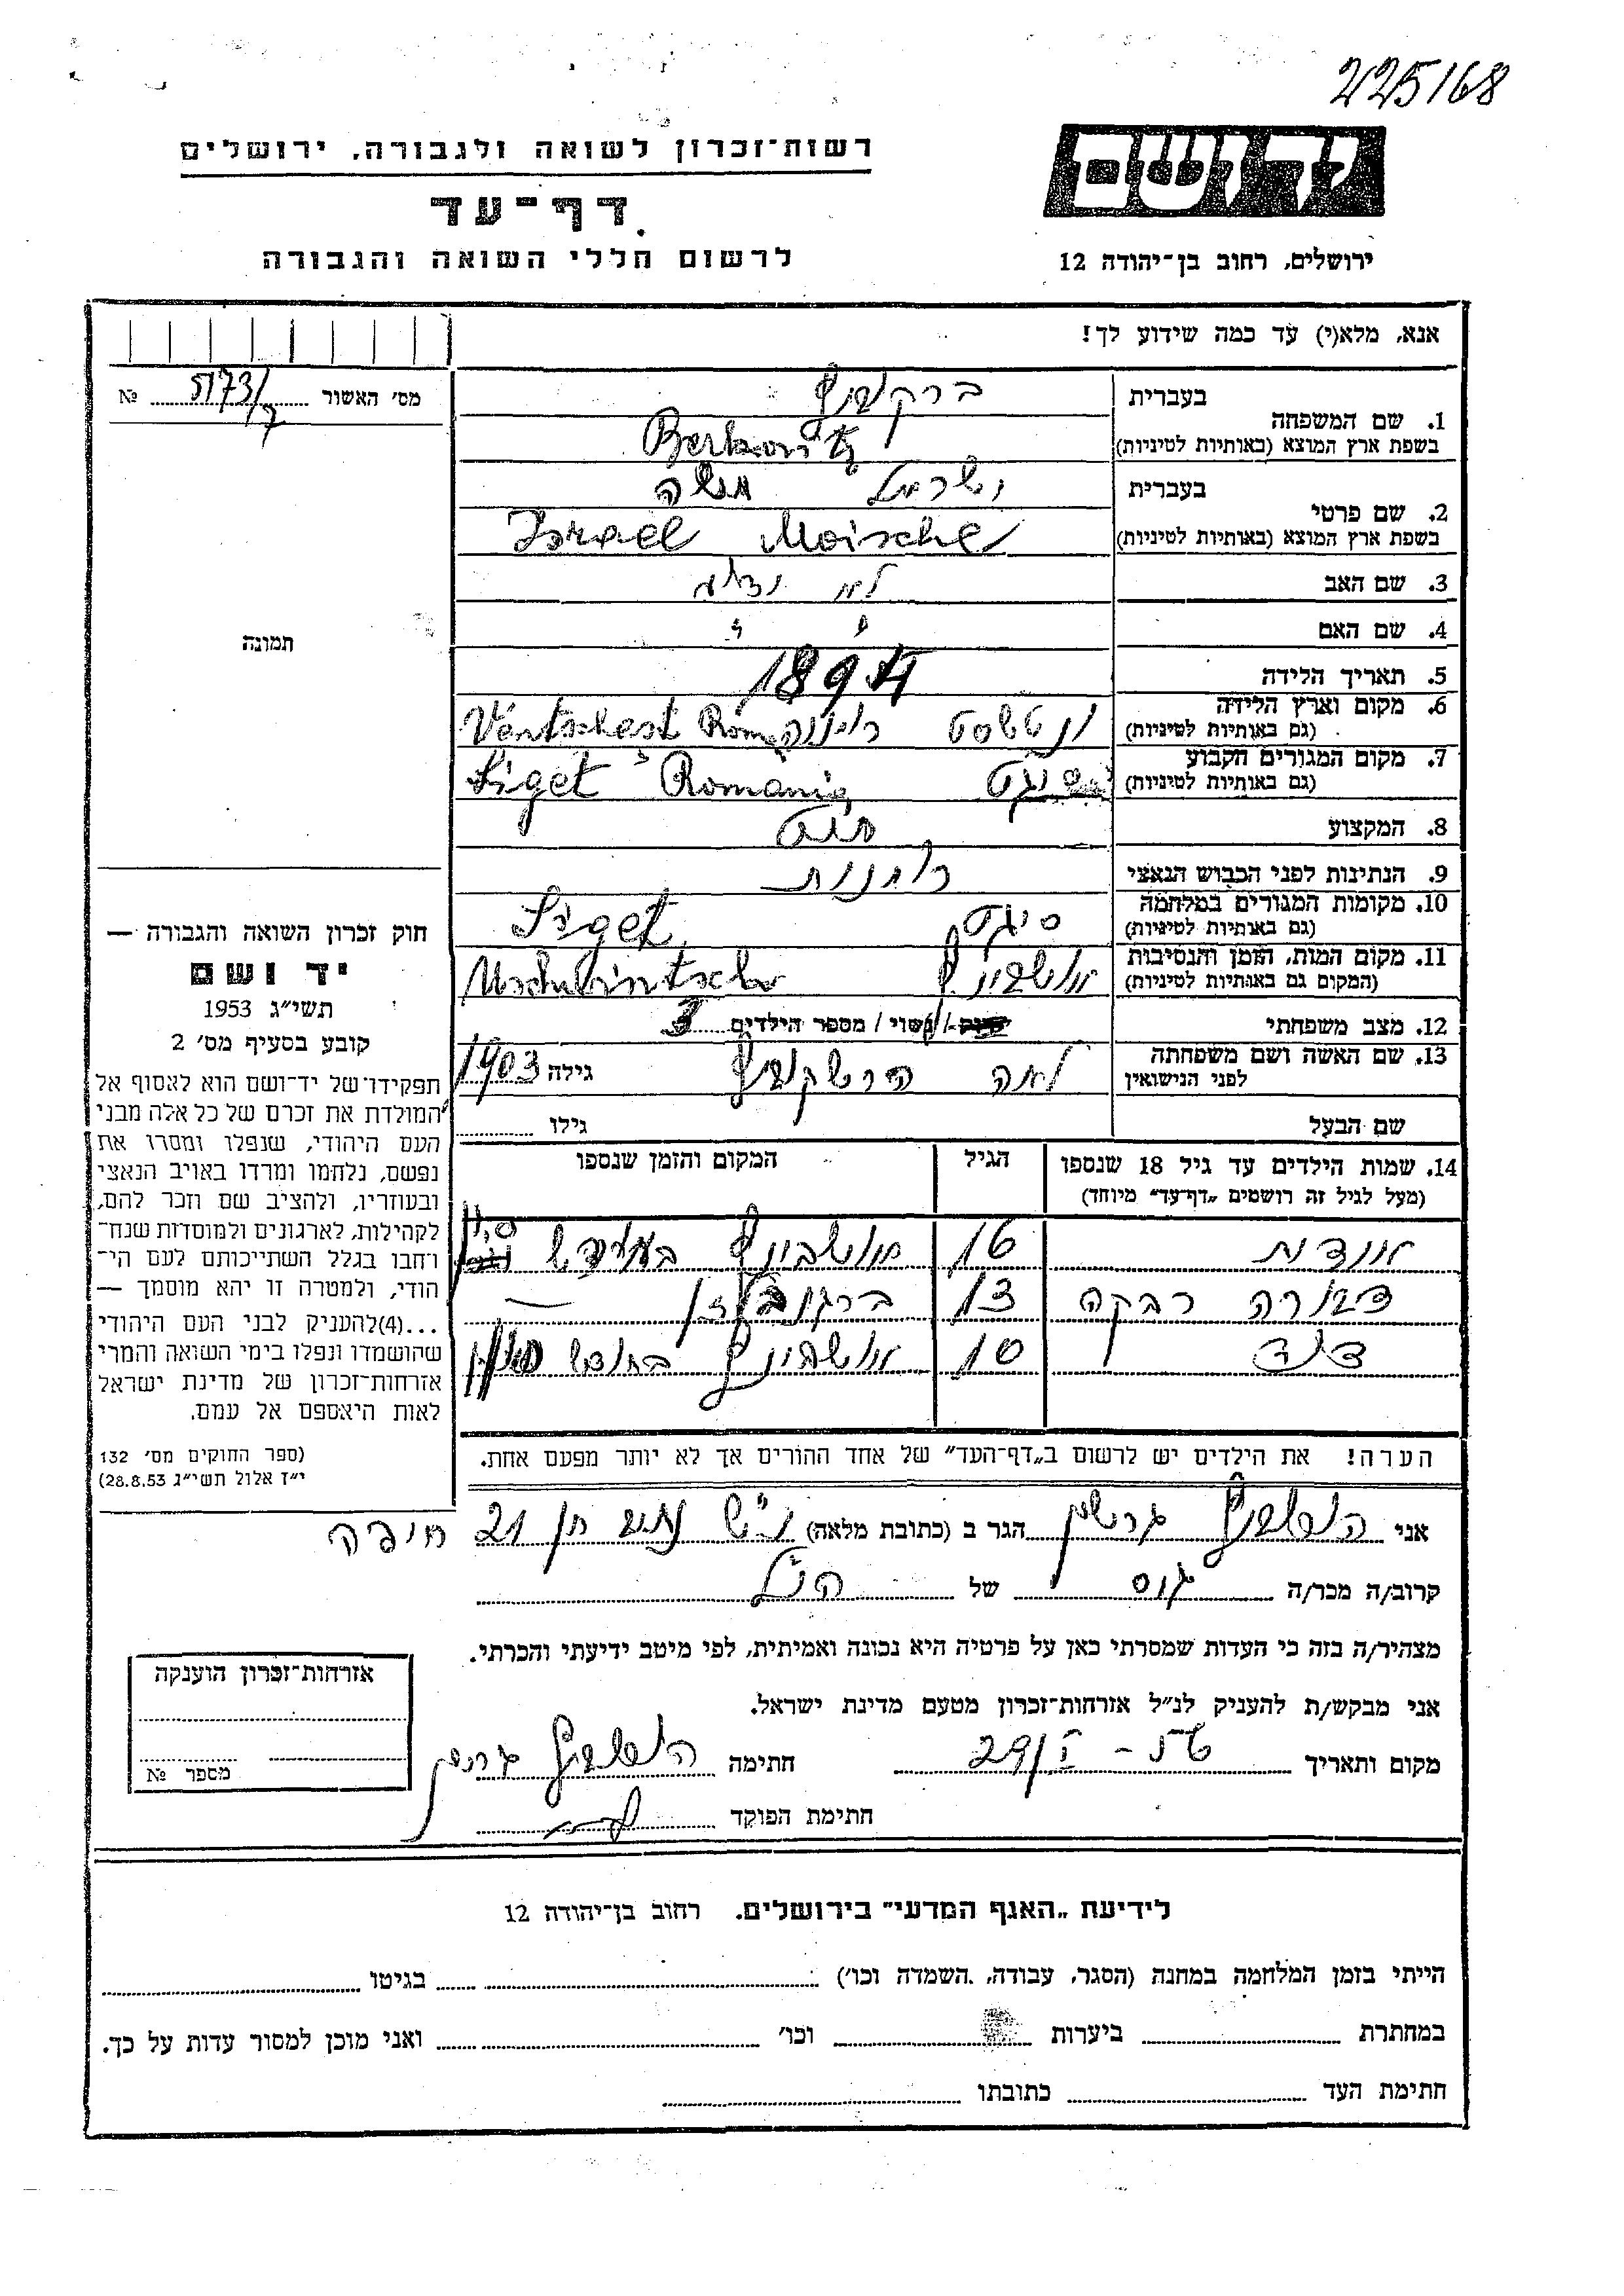 225168
יד ושם
רשות־זכרון לשואה ולגבורה, ירושלים
דף־עד
לרשום חללי השואה והגבורה
ירושלים, רחוב בן־יהודה 12
אנא, מלא(י) עד כמה שידוע לך!
מס׳ האשור 5173/7 №
תמונה
1. שם המשפחה
בעברית ברקוביץ
בשפת ארץ המוצא (באותיות לטיניות) Berkovitz
2. שם פרטי
בעברית ישראל משה
בשפת ארץ המוצא (באותיות לטיניות) Israel Moische
3. שם האב לא ידוע
4. שם האם
5. תאריך הלידה
6. מקום וארץ הלידה
(גם באותיות לטיניות) ונטשסט רומניה Ventschest Romania
7. מקום המגורים הקבוע
(גם באותיות לטיניות) סיגט Siget Romania
8. המקצוע
9. הנתינות לפני הכבוש הנאצי רומנית
10. מקומות המגורים במלחמה
(גם באותיות לטיניות) סיגט Siget
11. מקום המות, הזמן והנסיבות
(המקום גם באותיות לטיניות) אושביץ
12. מצב משפחתי נשוי / מספר הילדים 3
13. שם האשה ושם משפחתה
לפני הנישואין לאה הרשקוביץ גילה 1903
שם הבעל גילו
14. שמות הילדים עד גיל 18 שנספו
(מעל לגיל זה רושמים „דף־עד״ מיוחד)
הגיל
המקום והזמן שנספו
16 אושביץ
דבורה רבקה 13 ברגנבלזן —
דוד 10 אושביץ בחודש
הערה! את הילדים יש לרשום ב„דף־העד״ של אחד ההורים אך לא יותר מפעם אחת.
חוק זכרון השואה והגבורה —
יד ושם
תשי״ג 1953
קובע בסעיף מס׳ 2
תפקידו של יד־ושם הוא לאסוף אל
המולדת את זכרם של כל אלה מבני
העם היהודי, שנפלו ומסרו את
נפשם, נלחמו ומרדו באויב הנאצי
ובעוזריו, ולהציב שם וזכר להם,
לקהילות, לארגונים ולמוסדות שנח־
רחבו בגלל השתייכותם לעם הי־
הודי, ולמטרה זו יהא מוסמך —
...(4)להעניק לבני העם היהודי
שהושמדו ונפלו בימי השואה והמרי
אזרחות־זכרון של מדינת ישראל
לאות היאספם אל עמם.
(ספר החוקים מס׳ 132
י״ז אלול תשי״ג 28.8.53)
אני הגר ב (כתובת מלאה) 21 חיפה
קרוב/ה מכר/ה גיס של הנ״ל
מצהיר/ה בזה כי העדות שמסרתי כאן על פרטיה היא נכונה ואמיתית, לפי מיטב ידיעתי והכרתי.
אני מבקש/ת להעניק לנ״ל אזרחות־זכרון מטעם מדינת ישראל.
מקום ותאריך חתימה
חתימת הפוקד
אזרחות־זכרון הוענקה
מספר №
לידיעת „האגף המדעי״ בירושלים. רחוב בן־יהודה 12
הייתי בזמן המלחמה במחנה (הסגר, עבודה, השמדה וכו׳) בגיטו
במחתרת ביערות וכו׳ ואני מוכן למסור עדות על כך.
חתימת העד כתובתו